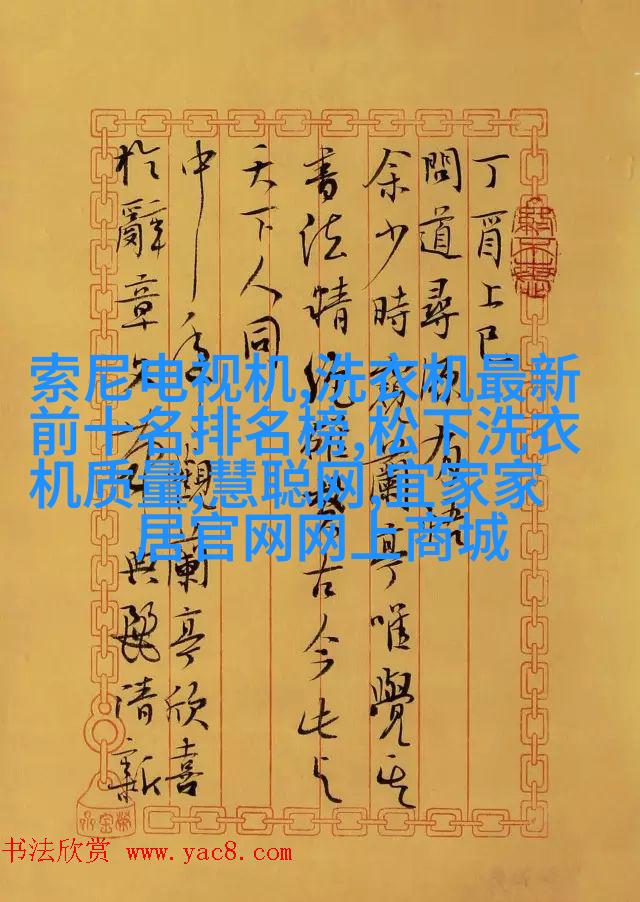 丁酉上巳
問道尋源有
余少時觀蘭亭唯覺其
書法精絕古今
天下人同
中年觀蘭亭欣喜
於辭章與清新
索尼电视机,洗衣机最新
前十名排名榜,松下洗衣
机质量,慧聪网,宜家家
居官网网上商城
书法欣赏 www.yac8.com